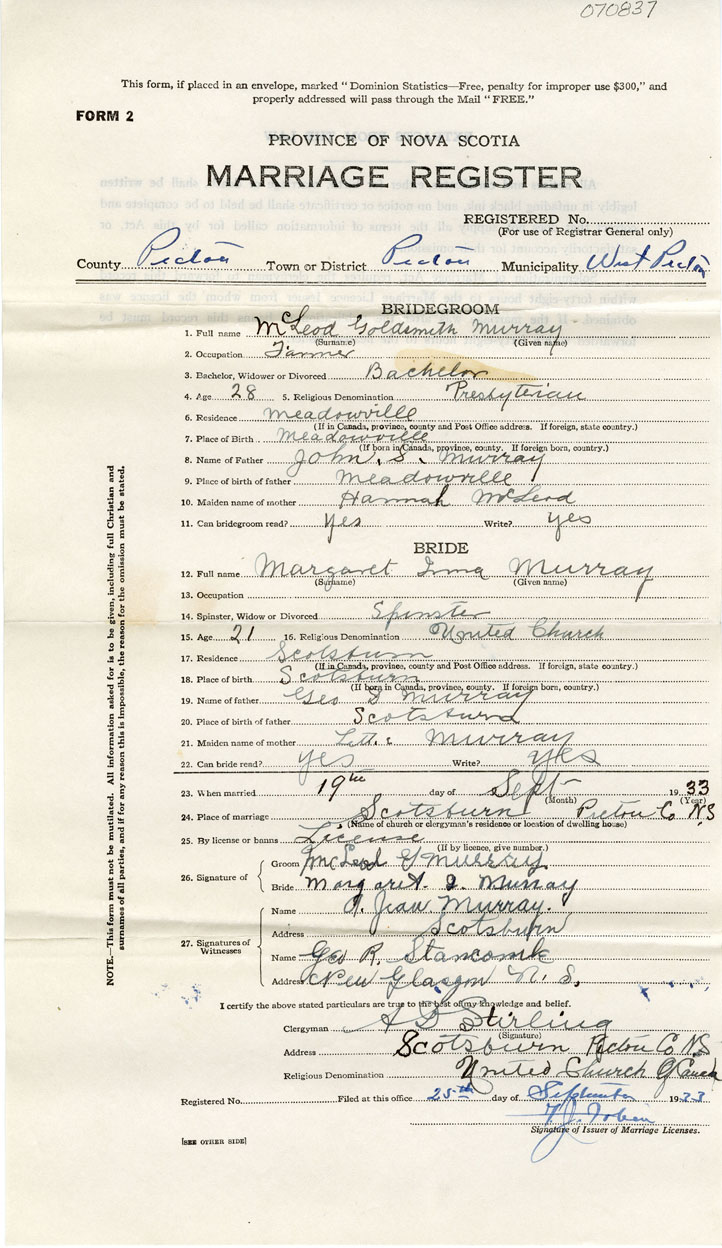 070837
This form, if placed in an envelope, marked "Dominion Statistics—Free, penalty for improper use $300," and
properly addressed will pass through the Mail "FREE."
FORM 2
PROVINCE OF NOVA SCOTIA
MARRIAGE REGISTER
REGISTERED No.
(For use of Registrar General only)
County Pictou Town or District Pictou Municipality West Pictou
BRIDEGROOM
1. Full name McLeod Goldsmith Murray
(Surname) (Given name)
2. Occupation Farmer
3. Bachelor, Widower or Divorced Bachelor
4. Age 28 5. Religious Denomination Presbyterian
6. Residence Meadowville
(If in Canada, province, county and Post Office address. If foreign, state country.)
7. Place of Birth Meadowville
(If born in Canada, province, county. If foreign born, country.)
8. Name of Father John S. Murray
9. Place of birth of father Meadowville
10. Maiden name of mother Hannah McLeod
11. Can bridegroom read? Yes Write? yes
BRIDE
12. Full name Margaret Irma Murray
(Surname) (Given name)
13. Occupation
14. Spinster, Widow or Divorced Spinster
15. Age 21 16. Religious Denomination United Church
17. Residence Scotsburn
(If in Canada, province, county and Post Office address. If foreign, state country.)
18. Place of birth Scotsburn
(If born in Canada, province, county. If foreign born, country.)
19. Name of father Geo Murray
20. Place of birth of father Scotsburn
21. Maiden name of mother Murray
22. Can bride read? yes Write? yes
23. When married 19th day of Sept 1933
(Month) (Year)
24. Place of marriage Scotsburn Pictou Co NS
(Name of church or clergyman's residence or location of dwelling house)
25. By license or banns License
(If by licence, give number.)
26. Signature of
Groom McLeod G Murray
Bride Margaret I. Murray
27. Signatures of Witnesses
Name Jean Murray.
Address Scotsburn
Name Geo R.
Address New Glasgow N. S.
I certify the above stated particulars are true to the best of my knowledge and belief.
Clergyman A D Stirling
(Signature)
Address Scotsburn Pictou Co NS
Religious Denomination United Church of Canada
Registered No. Filed at this office 25th day of September 1933
Signature of Issuer of Marriage Licenses.
[SEE OTHER SIDE]
NOTE.—This form must not be mutilated. All information asked for is to be given, including full Christian and
surnames of all parties, and if for any reason this is impossible, the reason for the omission must be stated.